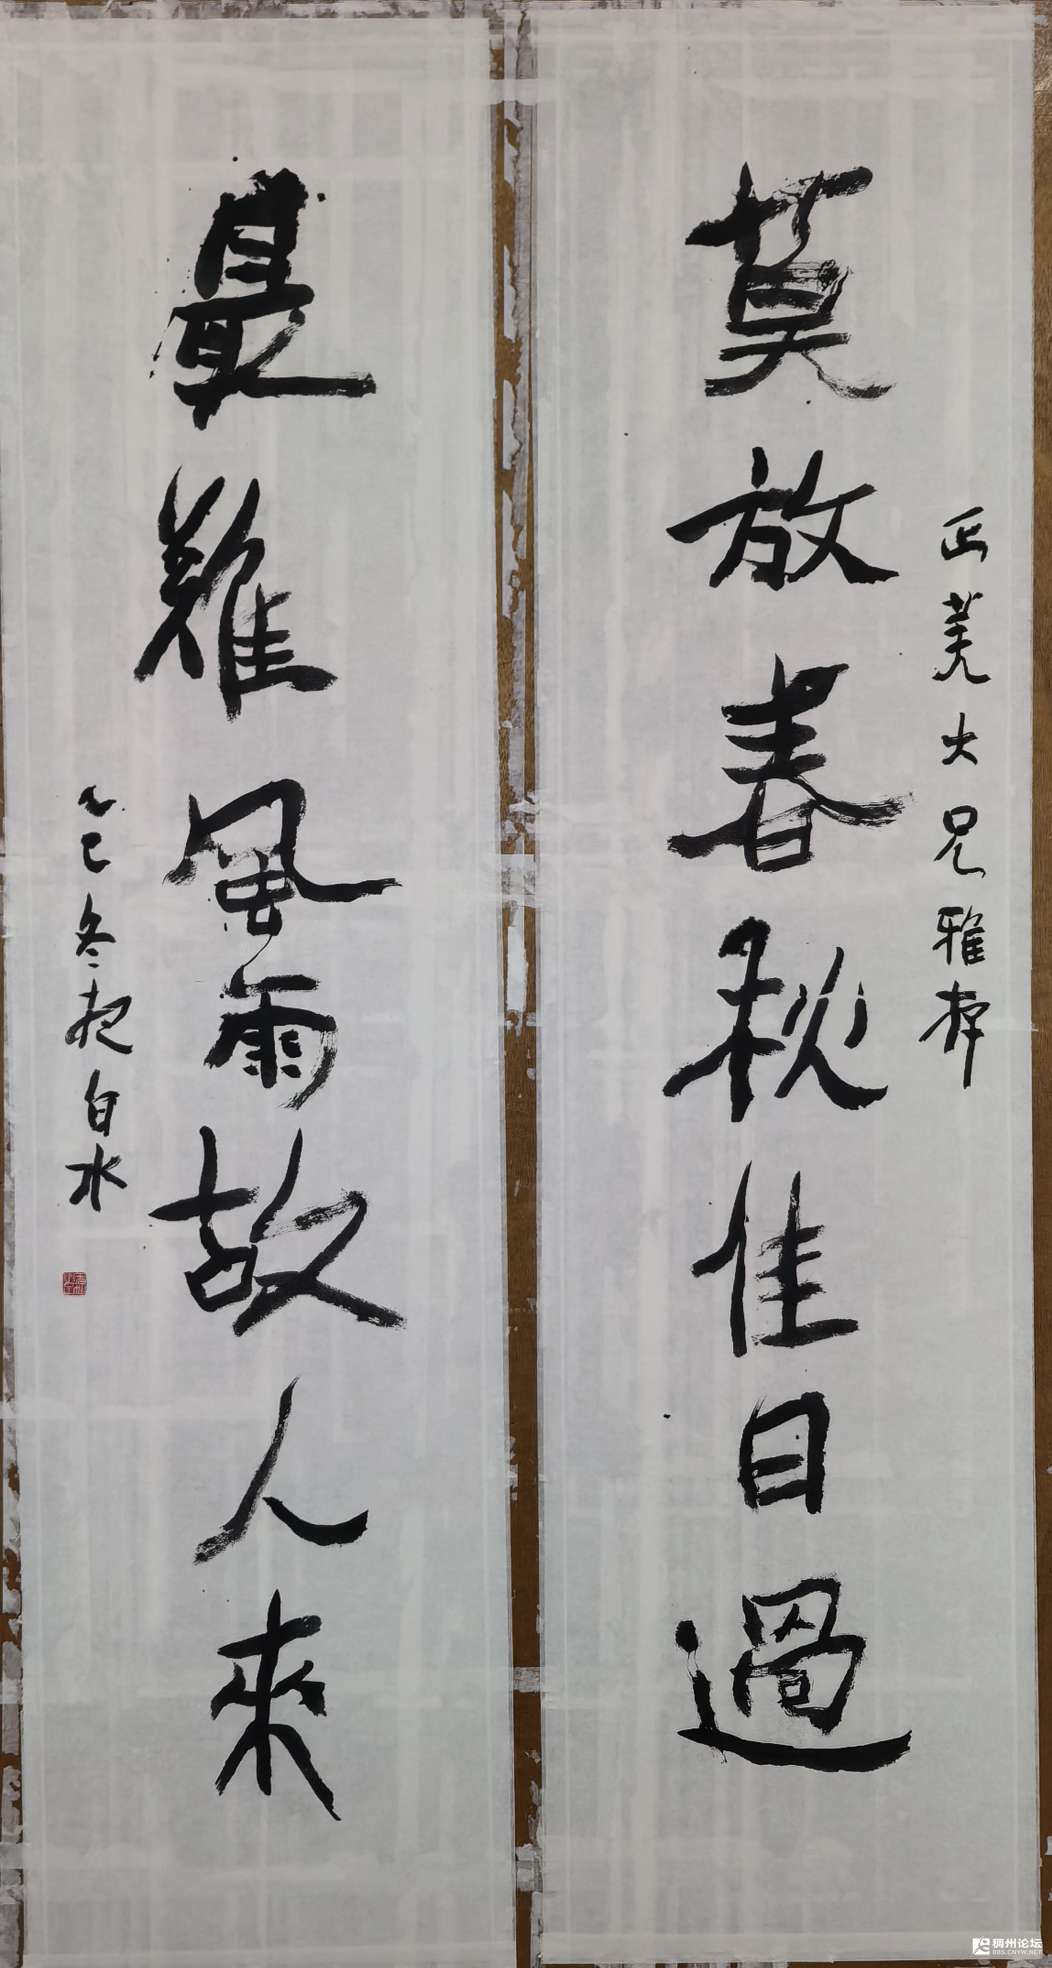 莫放春秋佳日過
正羌大兄雅存
最難風雨故人來
乙巳冬抱白水
稠州论坛
BBS.CNYW.NET